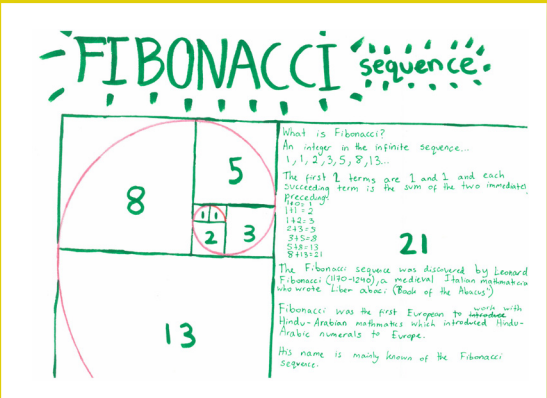 FIBONACCI sequence.
What is Fibonacci?
An integer in the infinite sequence...
1, 1, 2, 3, 5, 8, 13...
The first 2 terms are 1 and 1 and each
succeeding term is the sum of the two immediately
preceding:
1+0=1
1+1=2
1+2=3
2+3=5
3+5=8
5+8=13
8+13=21
8
5
1 1
2
3
21
13
The Fibonacci sequence was discovered by Leonard
Fibonacci (1170-1240), a medieval Italian mathematician
who wrote 'Liber abaci' ('Book of the Abacus')
Fibonacci was the first European to introduce work with
Hindu-Arabian mathmatics which introduced Hindu-
Arabic numerals to Europe.
His name is mainly known of the Fibonacci
sequence.